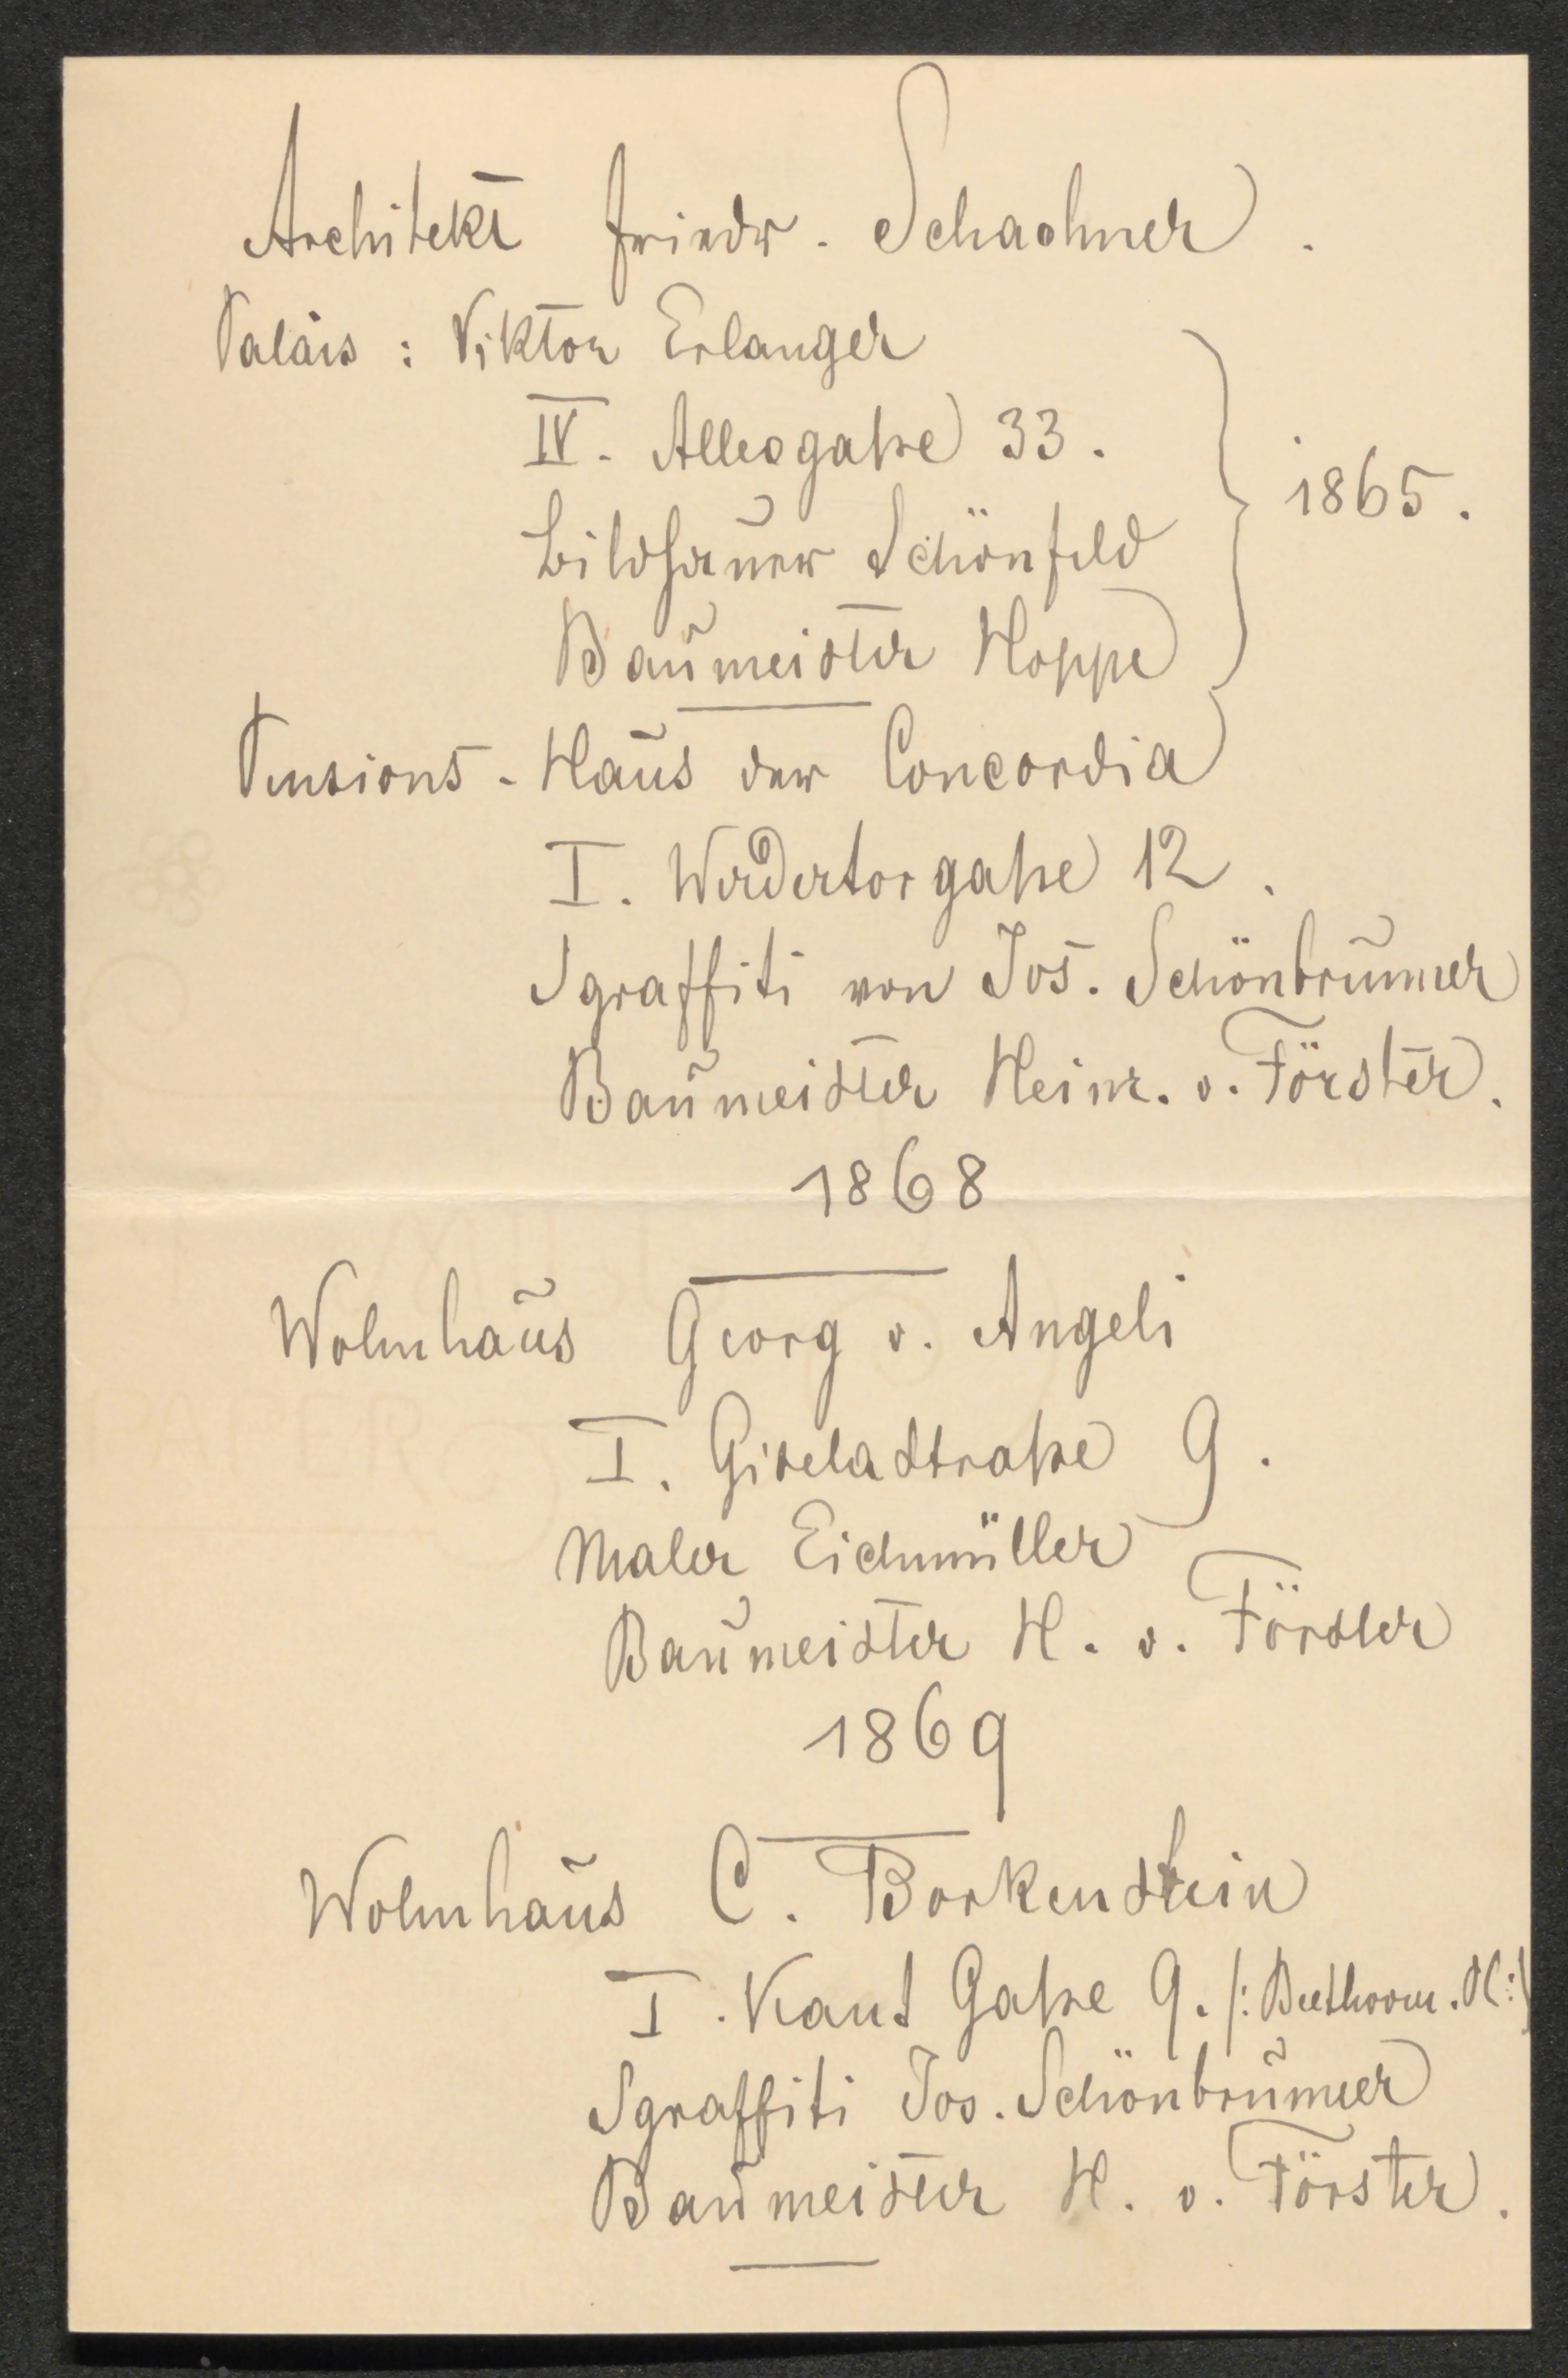 Architekt Friedr. Schachner.
Palais: Viktor Erlanger
IV. Alleegaße 33.
Bildhauer Schönfeld
1865.
Baumeister Hoppe
Pensions-Haus der Concordia
I. Werdertorgaße 12.
Sgraffiti von Jos. Schönbrunner
Baumeister Heinr. v. Förster.
1868
Wohnhaus Georg v. Angeli
I. Giselastraße 9.
Maler Eichmüller
Baumeister H. v. Förster
1869
Wohnhaus C. Borkenstein
I. Kant Gaße 9. /: Beethoven. Pl:/
Sgraffiti Jos. Schönbrunner
Baumeister H. v. Förster.